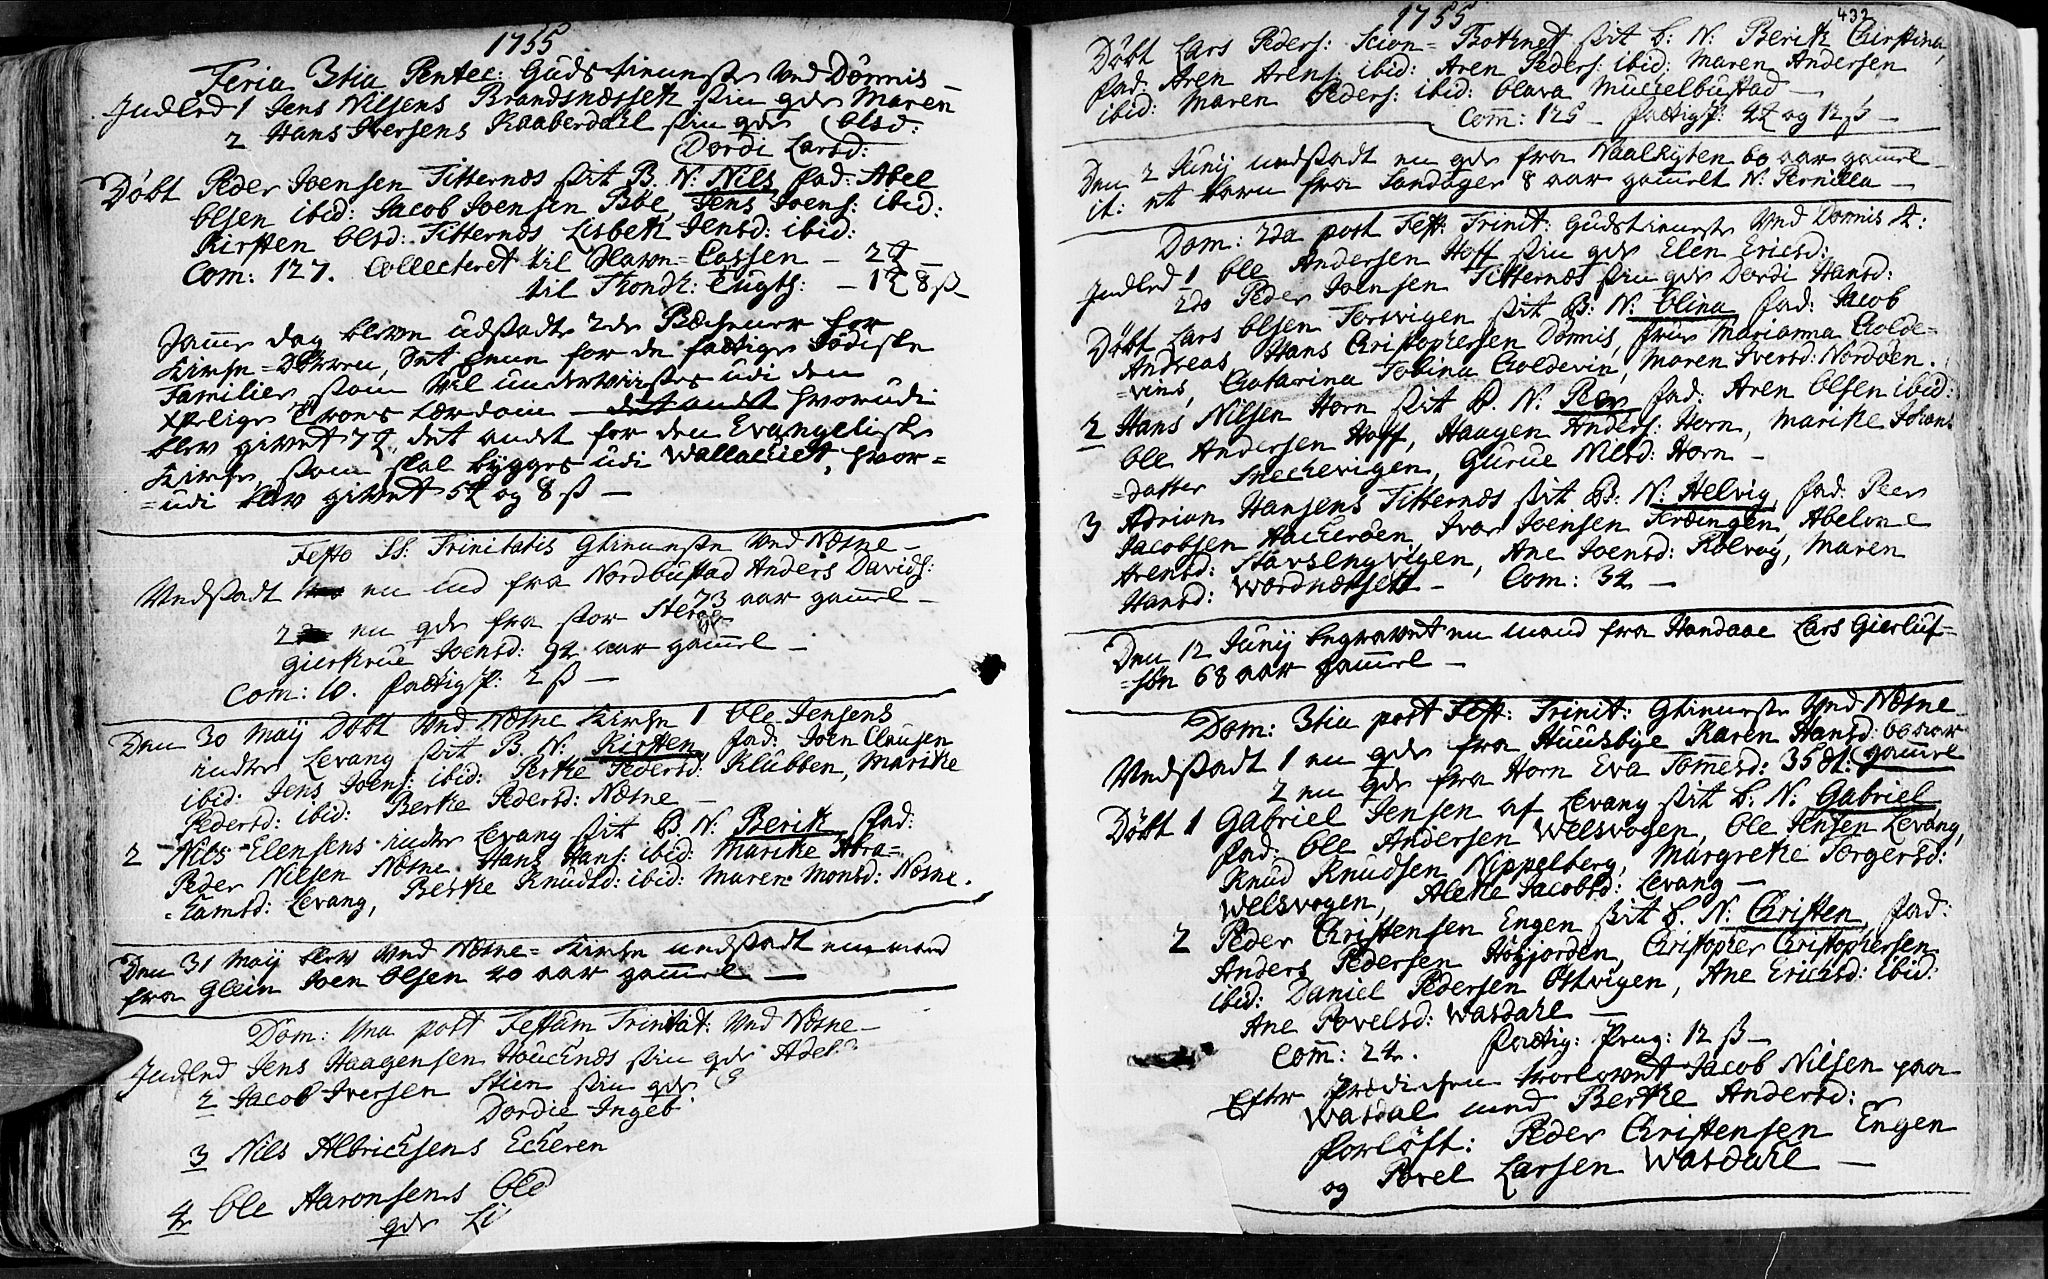 1755
Feria 3tia Pentec: Gudstienneste ved Dønnis
Indled 1 Jens Nilsens Brandsnæsset sin qde Maren
2 Hans Iversens Raaberdahl sin qde Olsd:
Dordi Larsd:
Døbt Peder Joensen Titternæs sit B. N: Nils fad: Abel
Olsen ibid: Jacob Joensen Böe, Jens Joens: ibid:
Kirsten Olsd: Titternæs Lisbeth Jensd: ibid:
Com: 127. Collecteret til Hawn-Cassen
til Trondh: Tugth: 8 ß
Samme dag bleve udsadt 2de Beckener for
Kirke-Dørren, det eene for de fattige Jødiske
Familier, som vil underviises udi den
Xstelige Troes Lærdom det andet hvorudi
blev givet 7 det andet for den Evangeliske
Kirke, som skal bygges udi Wallachiet, hvor=
=udi blev givet 5 og 8 ß
Festo SS: Trinitatis Gtienneste ved Næsne
Nedsadt en ind fra Nordbustad Anders Davids:
73 aar gammel
2 en qde fra stor
Giertrue Joensd: 92 aar gammel
Com: 10. fattigp: 2 ß
Den 30 Maij Døbt ved Næsne Kirke 1 Ole Jensens
indre Levang sit B. N: Kirsten, fad: Joen Clausen
ibid: Jens Joens: ibid: Berthe Pedersd: Klubben, Marithe
Pedersd: ibid: Berthe Pedersd: Næsne
2 Nils Elensens indre Levang sit B. N: Berith fad:
Peder Nielsen Næsne, Hans Hans: ibid: Marithe Abra=
=hamsd: Levang, Berthe Knudsd: ibid: Maren Monsd: Næsne.
Den 31 Maij blev ved Næsne-Kirke nedsadt en mand
fra Glein Joen Olsen 40 aar gammel
Dom: 1ma post Festum Trinitat: ved Næsne
Indled Jens Haagensen sin qde
2 Jacob Iversen Stien sin qde
Dordie Ingeb
3 Nils Albrichsens Eckeren
4 Ole Aaronsens
qde Li
1755
432
Døbt Lars Peders: Scion= sit b: N: Berith Christina,
fad: Aren Arens: ibid: Aren Peders: ibid: Maren Andersen
ibid: Maren Peders: ibid: Olava Muckelbustad
Com: 125 fattigp: 4 og 12 ß
Den 2 Junij nedsadt en qde fra 60 aar gammel
it: et barn fra Sandager 8 aar gammelt N: Pernilla
Dom: 2da post Fest: Trinit: Gudstienneste ved Dønnis K:
Indled 1 Ole Andersen Hoff sin qde Elen Ericsd:
2do Peder Joensen Titternæs sin qde Dordi Hansd:
Døbt Lars Olsen Forsvigen sit B: N: Olina, fad: Jacob
Andreas Hans Christophersen Dønnis, frue Marianna Colde=
=vins, Catarina Tobina Coldevin, Maren Iversd: Nordøen.
2 Hans Nilsen Horn sit B. N: Peer, fad: Aren Olsen ibid:
Ole Andersen Hoff, Haagen Anders: Horn, Marithe Johans
=datter Sneckevigen, Gurue Nilsd: Horn
3 Adrian Hansens Titternæs sit B: N: Helvig fad: Peer
Jacobsen Hackerøen, Ivar Joensen Ferdingen, Abelone
Arensd: Stavsengvigen, Ane Joensd: Rølvog, Maren
Hansd: Wordnæsset Com: 34
Den 12 Junij begravet en mand fra Handaae Lars Gierluf=
=søn 68 aar gammel
Dom: 3tia post Fest: Trinit: Gtienneste ved Næsne
Nedsadt 1 en qde fra Huusbye Karen Hansd: 60 aar
2 en qde fra Horn Eva Tomesd: 35 dt: gammel
Døbt 1 Gabriel Jensen af Levang sit b: N: Gabriel
fad: Ole Andersen Welsvogen, Ole Jensen Levang,
Knud Knudsen Nippelberg, Margrethe Torgersd:
Welsvogen, Alethe Jacobsd: Levang
2 Peder Christensen Engen sit b. N: Christen, fad:
Anders Pedersen Højjorden, Christopher Christophersen
ibid: Daniel Pedersen Ottvigen, Ane Ericsd: ibid:
Ane Povelsd: Wasdahl
Com: 24. fattig: Peng: 12 ß
Efter Prædicken trolovet Jacob Nilsen paa
Wasdal med Berthe Andersd:
forløft: Peder Christensen Engen
og Povel Larsen Wasdahl